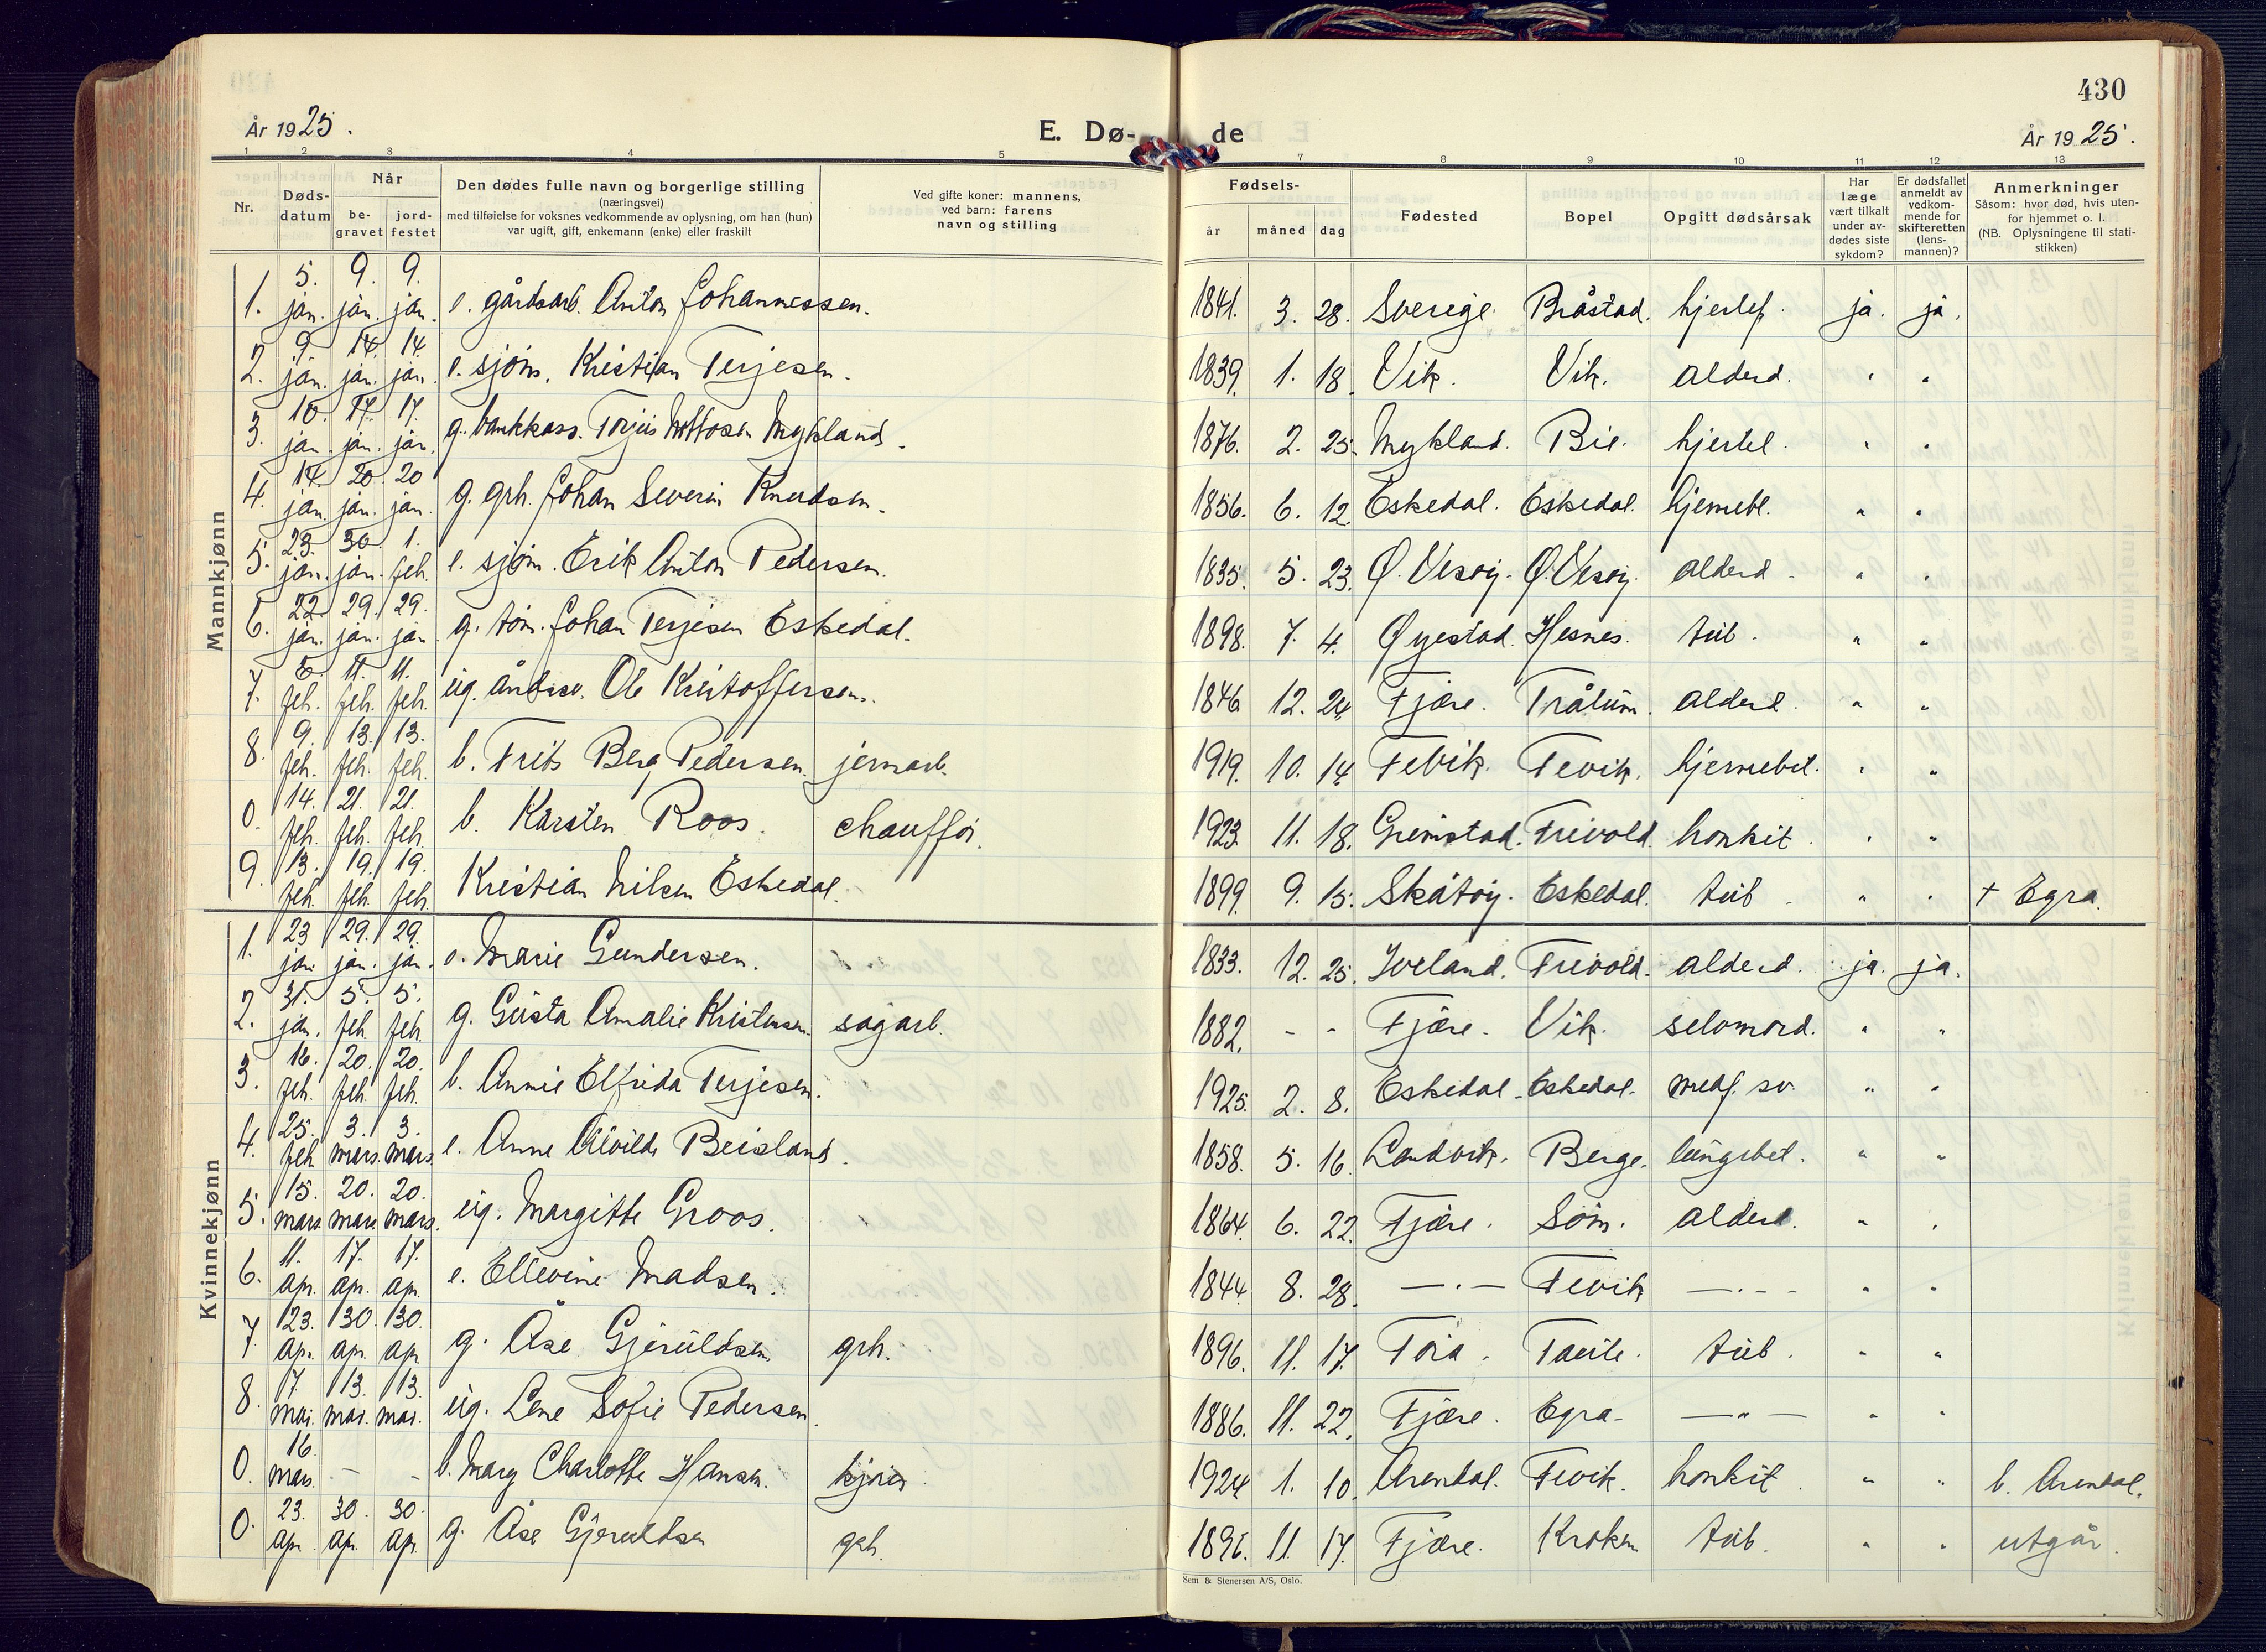 430
År 1925.
E. Dø- de
År 1925.
1 2 3 4 5 7 8 9 10 11 12 13
Nr. Døds-datum Når be-gravet jord-festet Den dødes fulle navn og borgerlige stilling (næringsvei) med tilføielse for voksnes vedkommende av oplysning, om han (hun) var ugift, gift, enkemann (enke) eller fraskilt Ved gifte koner: mannens, ved barn: farens navn og stilling Fødsels- år måned dag Fødested Bopel Opgitt dødsårsak Har læge vært tilkalt under av-dødes siste sykdom? Er dødsfallet anmeldt av vedkom-mende for skifteretten (lens-mannen)? Anmerkninger Såsom: hvor død, hvis uten-for hjemmet o. l. (NB. Oplysningene til stati-stikken)
Mannkjønn
1. 5. jan. 9. jan. 9. jan. e. gårdsarb. Anton Johannessen. 1841. 3. 28. Sverige Bråstad. hjertef. ja. ja.
2. 9. jan. 14. jan. 14. jan. e. sjøm. Kristian Terjesen. 1839. 1. 18. Vik. Vik. alderd. " "
3. 10. jan. 17. jan. 17. jan. g. bankkass. Torjus Mykland. 1876. 2. 25. Mykland. Bie. hjertel. " "
4. 14. jan. 20. jan. 20 jan. g. grh. Johan Severin Knudsen. 1856. 6. 12. Eskedal. Eskedal. hjernebl. " "
5. 23. jan. 30. jan. 1. feb. e. sjøm. Erik Anton Pedersen. 1835. 5. 23. Ø. Vesøy. Ø. Vesøy. alderd. " "
6. 22. jan. 29. jan. 29. jan. g. tøm. Johan Terjesen Eskedal. 1898. 7. 4. Øyestad. Hesnes. tub. " "
7. feb. 11. feb. 11. feb. ug. åndssv. Ole Kristoffersen. 1846 12. 24. Fjære. Trålum. alderd. " "
8. 9. feb. 13. feb. 13. feb. b. Frits Berg Pedersen. jernarb. 1919. 10. 14. Fevik. Fevik. hjernebet. " "
0. 14. feb. 21. feb. 21. feb. b. Karsten Roos. chauffør. 1923. 11. 18. Grimstad. Frivold. bronkit. " "
9. 13. feb. 19. feb. 19. feb. Kristian Nilsen Eskedal. 1899. 9. 15. Skåtøy. Eskedal. tub. " " + Egra.
Kvinnekjønn
1. 23 jan. 29. jan. 29. jan. e. Marie Gundersen. 1833. 12. 25. Iveland. Frivold. alderd. ja. ja.
2. 31. jan. 5. feb. 5. feb. g. Gusta Amalie Kristensen. sagarb. 1882. - - Fjære. Vik. selvmord. " "
3. 16. feb. 20. feb. 20. feb. b. Annie Elfrida Terjesen. 1925. 2. 8. Eskedal. Eskedal. medf. sv. " "
4. 25. feb. 3. mars. 3. mars. e. Anne Alvilde Beisland. 1858. 5. 16. Landvik. Berge. lungebet. " "
5. 15. mars 20. mars 20. mars. ug. Margitte Groos. 1864. 6. 22. Fjære. Søm. alderd. " "
6. 11. ap. 17. ap. 17. ap. e. Ellevine Madsen. 1844. 8. 28. —.— Fevik —.— " "
7. 23. ap. 30. ap. 30. ap. g. Åse Gjeruldsen. grh. 1896. 11. 17. " "
tub.
8. 7. mai. 13. mai. 13. mai. ug. Lene Sofie Pedersen. 1886. 11. 22. Fjære. Egra. —"— " "
0. 16. mars. - - b. Mary Charlotte Hansen. 1924. 1. 10. Arendal. Fevik. bronkit. " " b. Arendal.
0. 23. ap. 30. ap. 30. ap. g. Åse Gjeruldsen grh. 1896. 11. 17. Fjære. Kroken tub. " " utgår.
Sem & Stenersen A/S, Oslo.